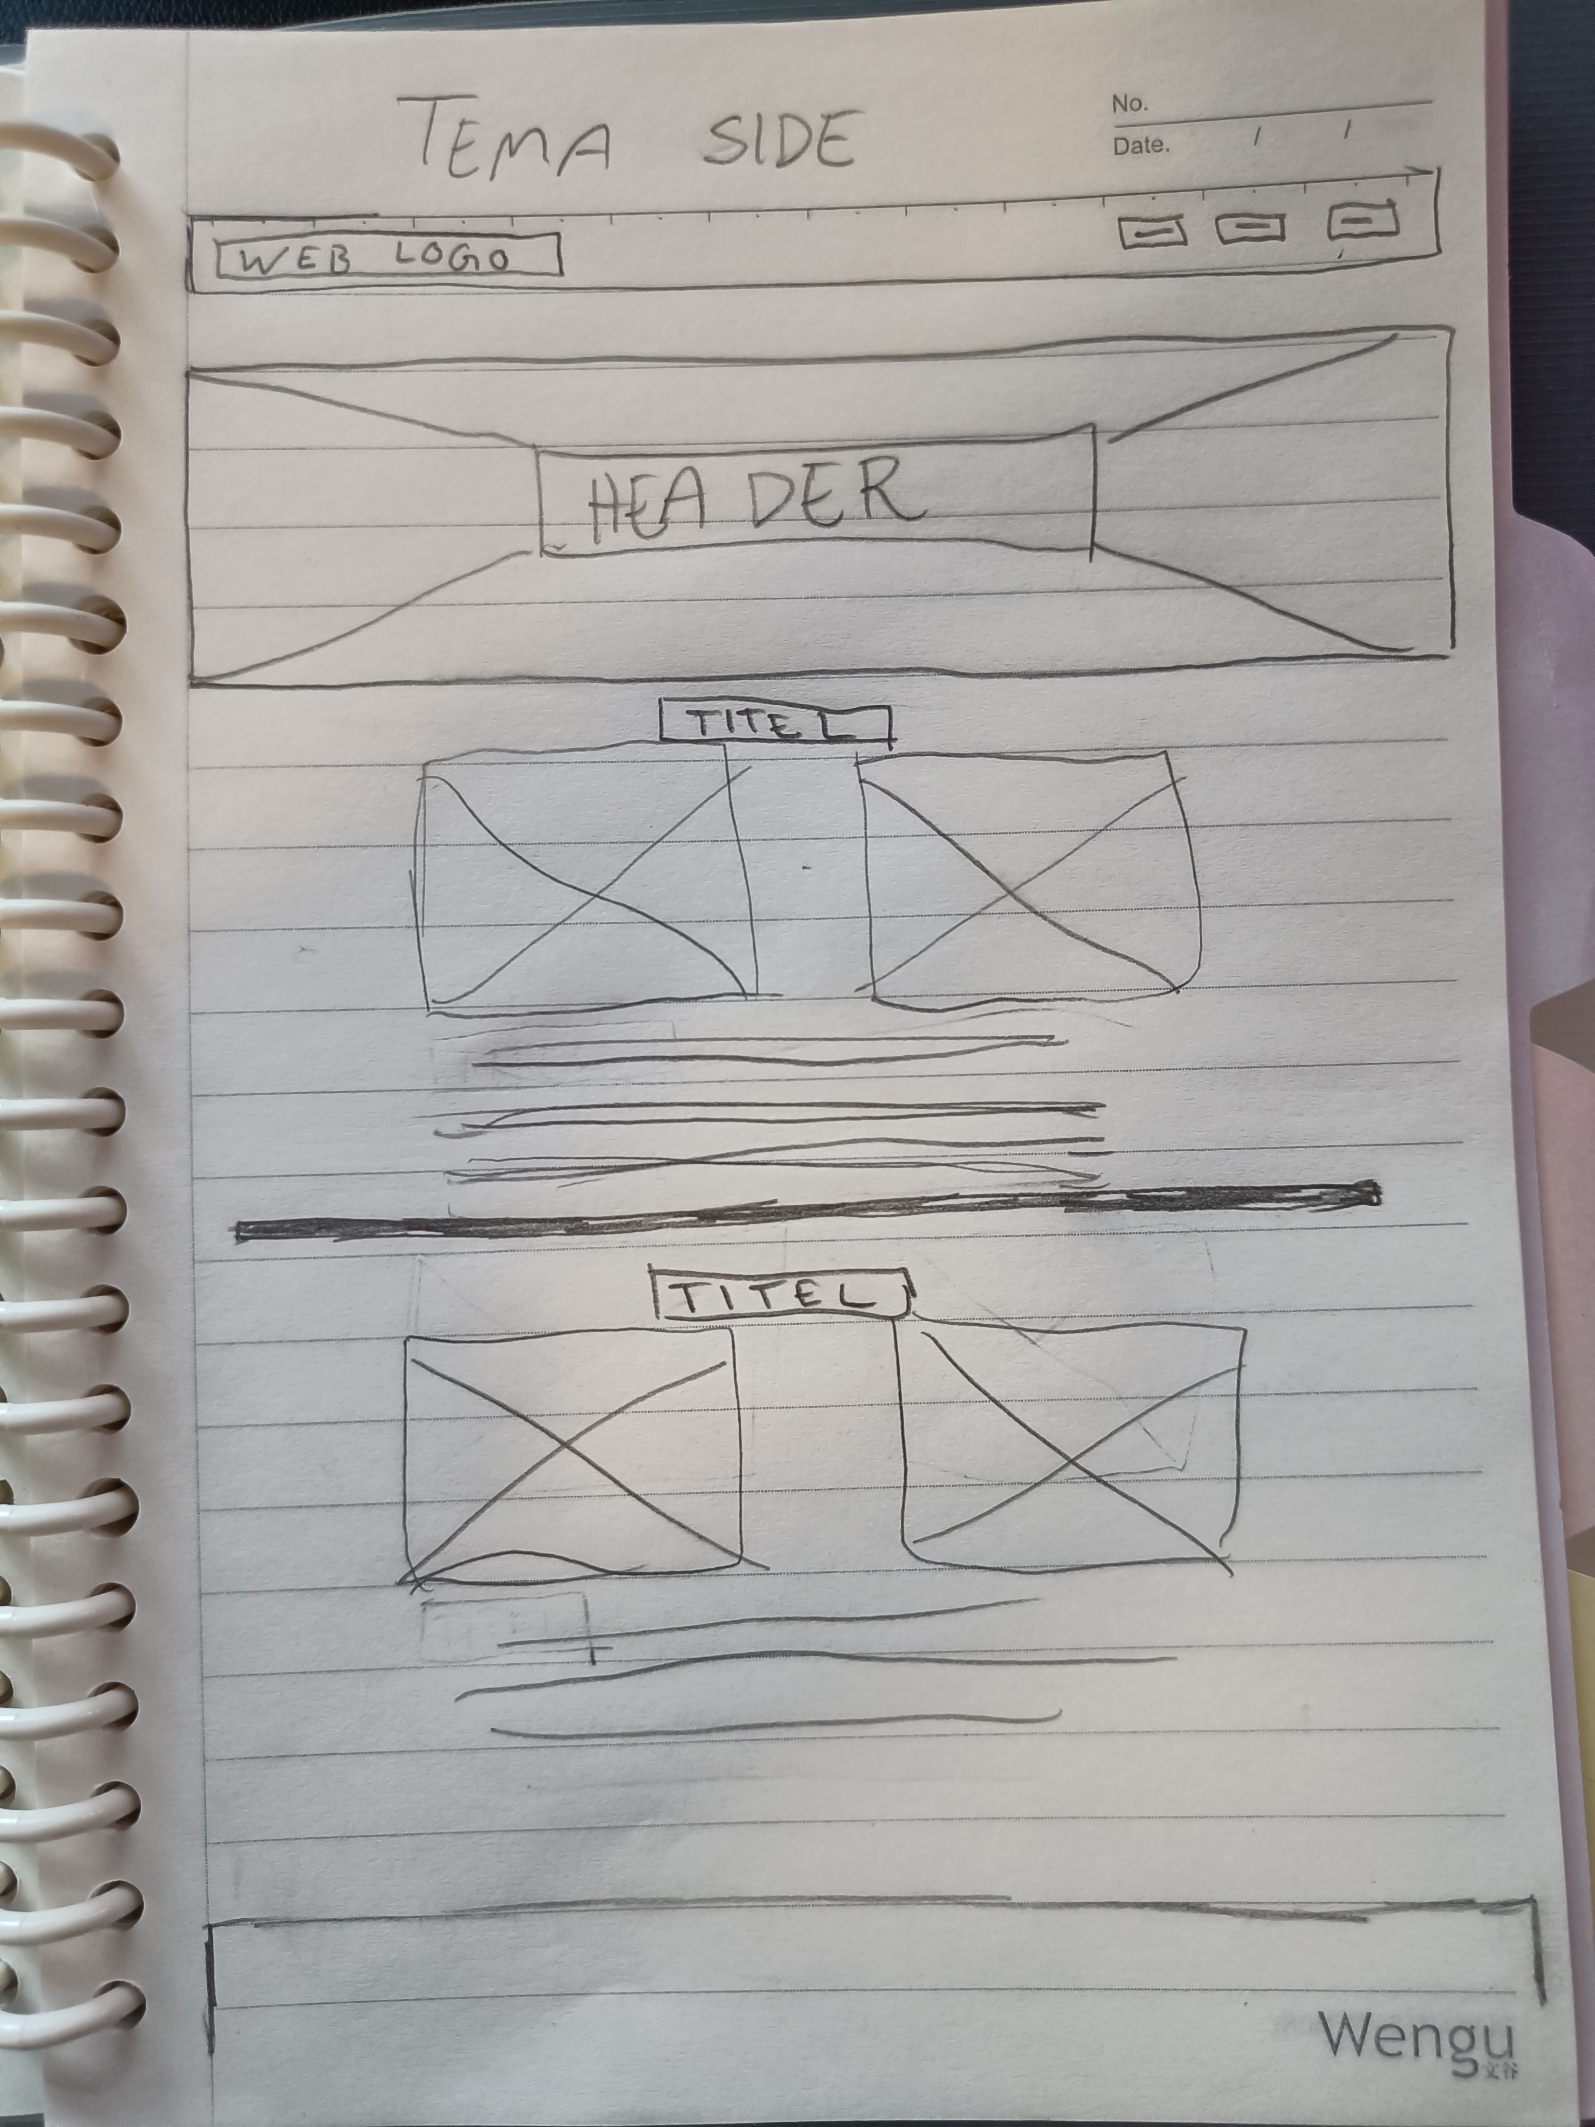 TEMA SIDE
No.
Date. / /
WEB LOGO
HEADER
TITEL
TITEL
Wengu
文谷